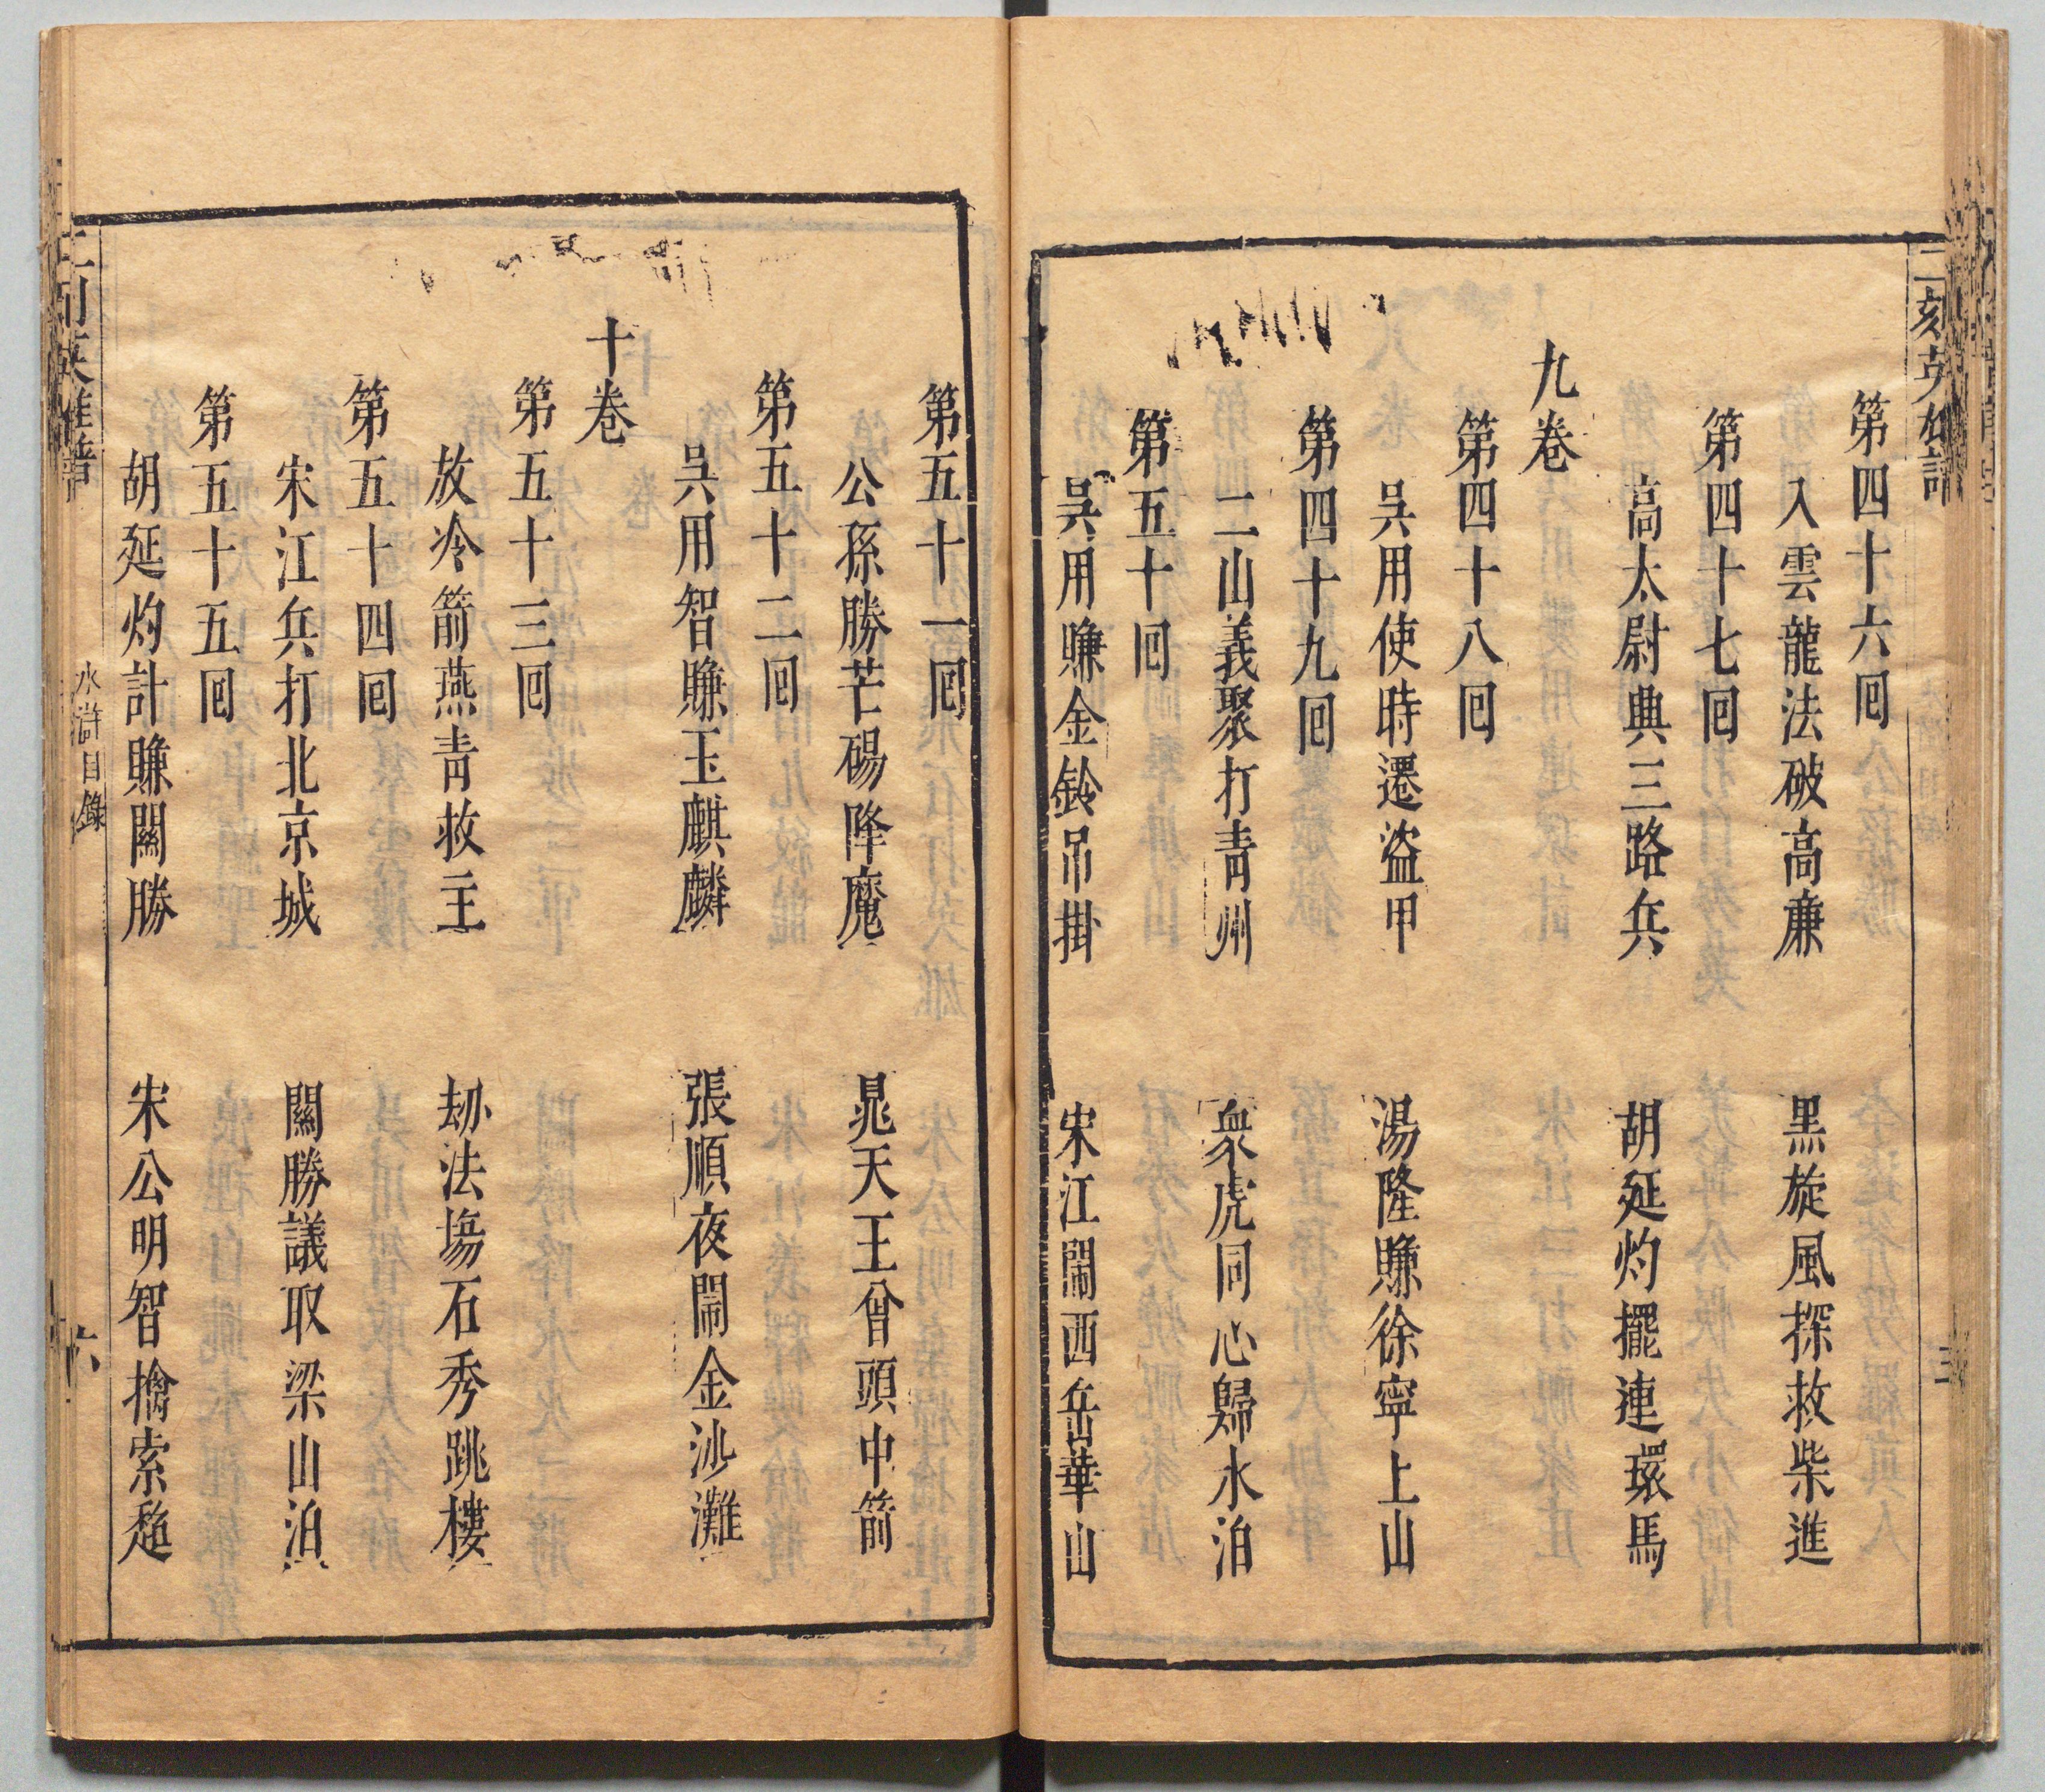 二刻英雄譜
第四十六囘
入雲龍法破高廉　黒旋風探救柴進
第四十七囘
高太尉典三路兵　胡延灼擺連環馬
九卷
第四十八囘
吳用使時遷盜甲　湯隆賺徐寧上山
第四十九囘
二山義聚打青州　衆虎同心歸水泊
第五十囘
吳用賺金鈴吊掛　宋江閙西岳華山
第五十一囘
公孫勝芒碭降魔　晁天王曾頭中箭
第五十二囘
吳用智賺玉麒麟　張順夜閙金沙灘
十卷
第五十三囘
放冷箭燕青救主　刼法塲石秀跳樓
第五十四囘
宋江兵打北京城　關勝議取梁山泊
第五十五囘
胡延灼計賺關勝　宋公明智擒索趨
英雄譜　水滸目錄　六